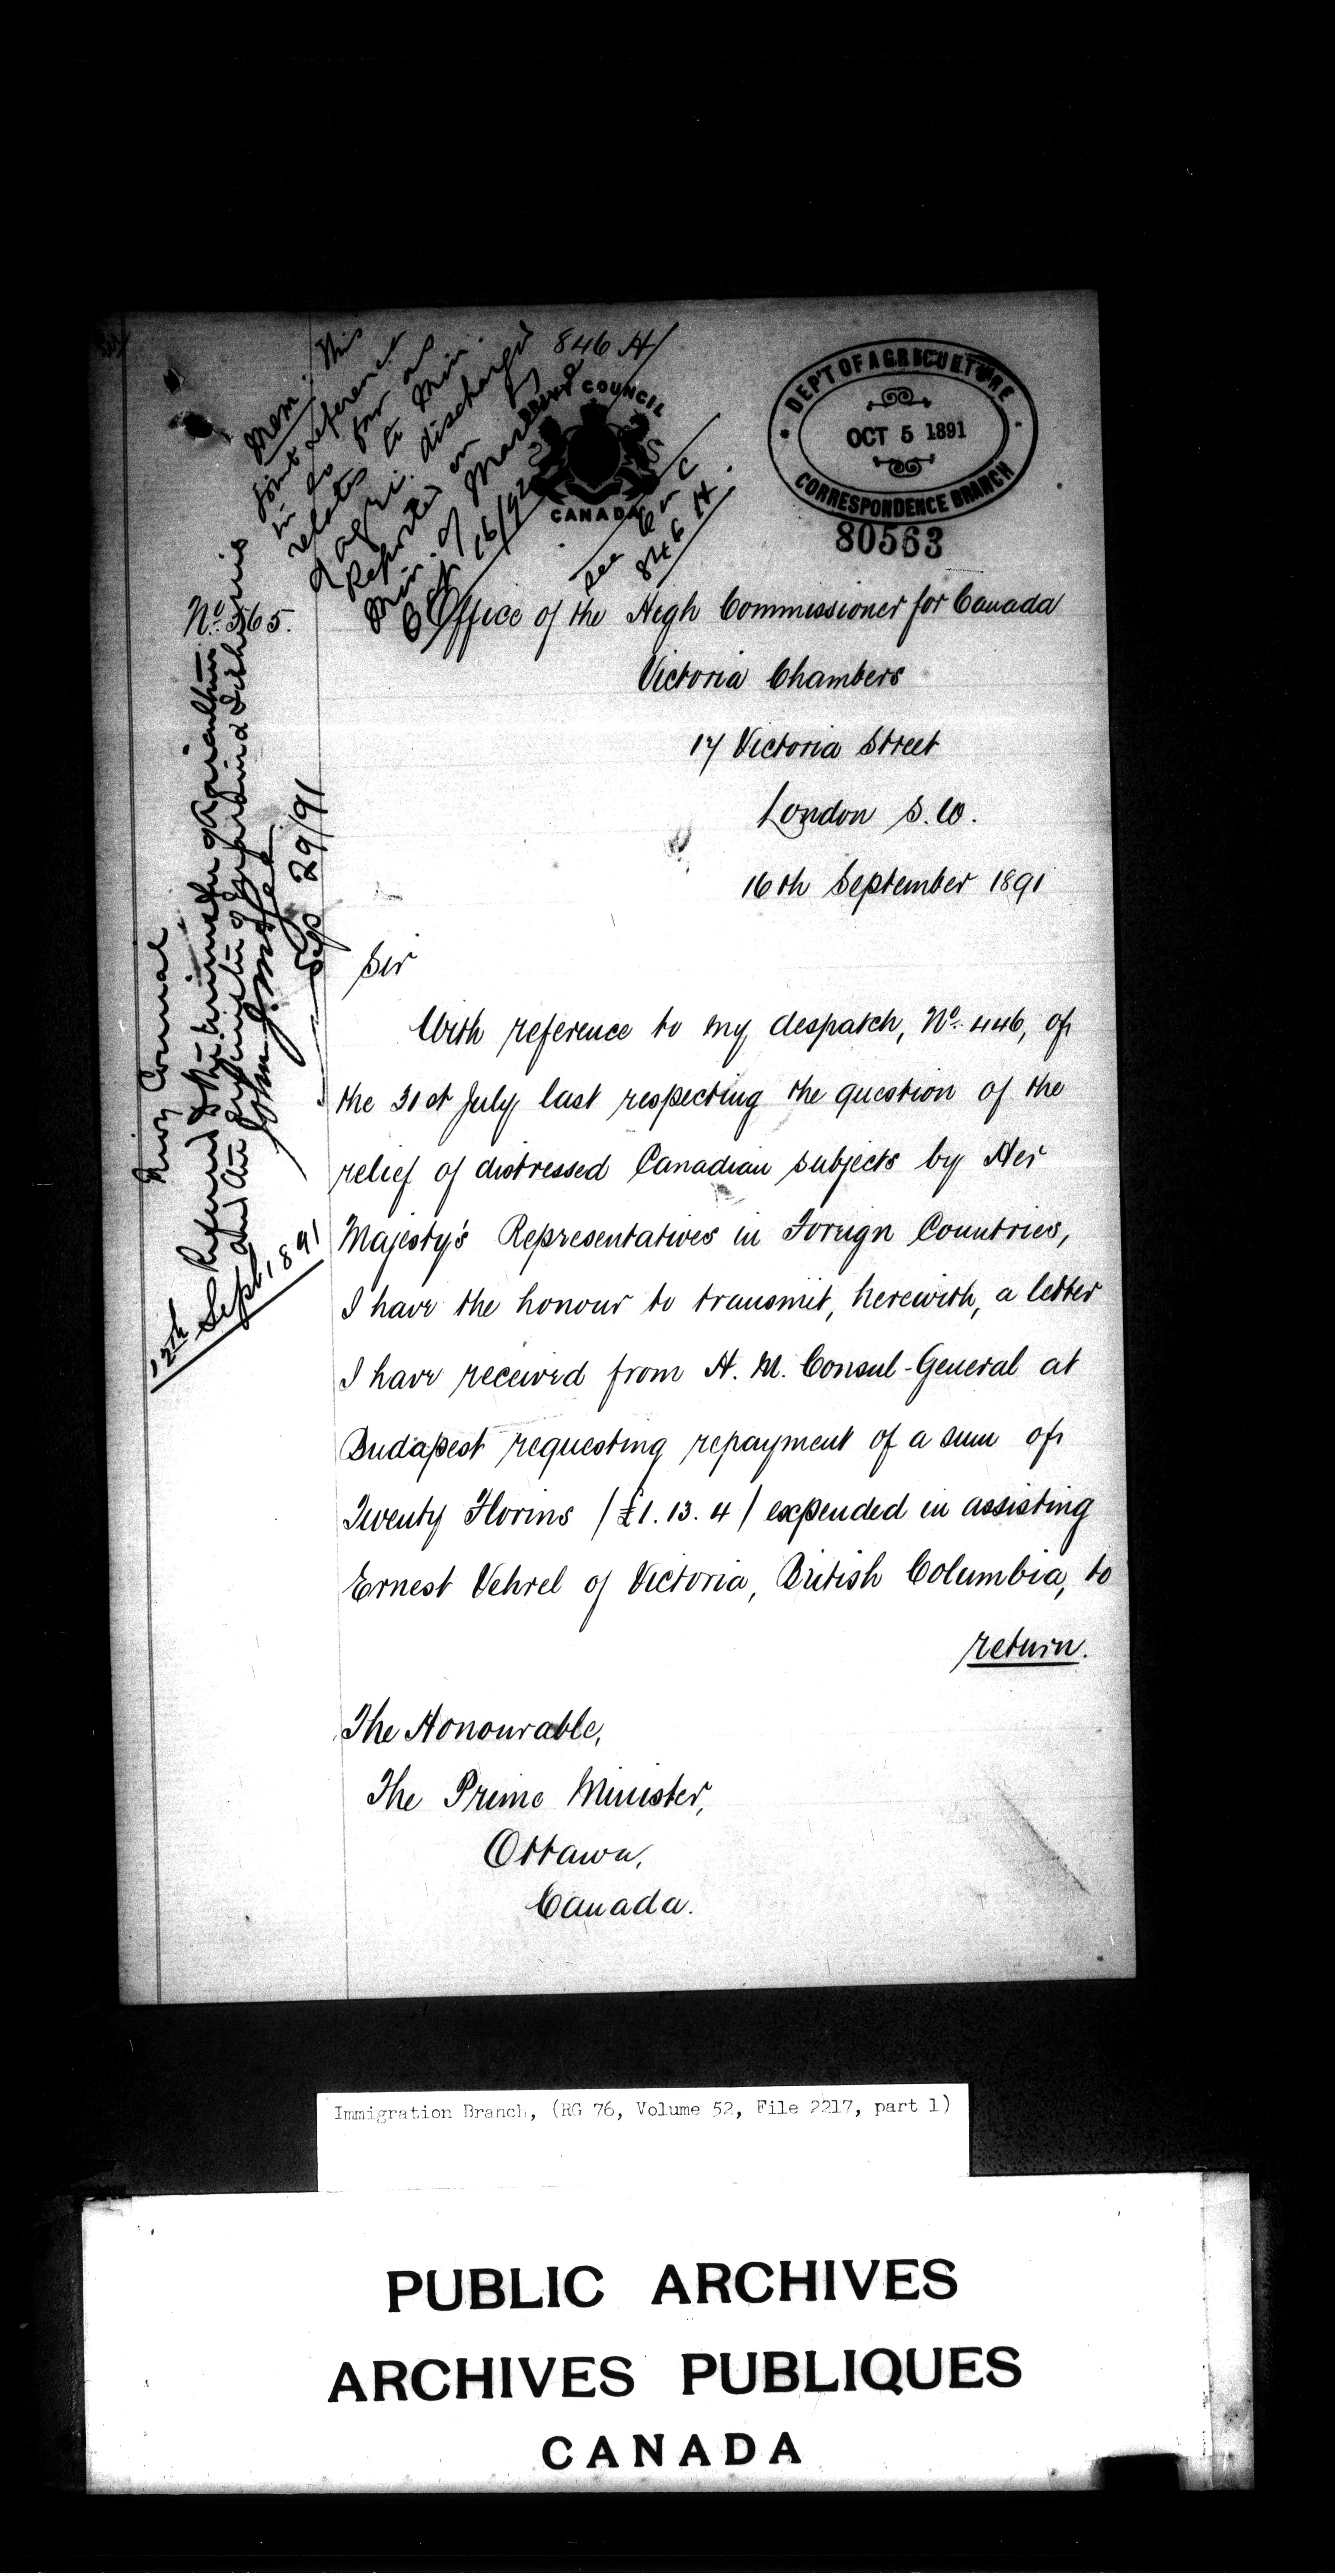 846 H
PRIVY COUNCIL
CANADA
DEP'T OF AGRICULTURE
OCT 5 1891
CORRESPONDENCE BRANCH
80563
Mem: This
joint reference
in so far as
relates to Min.
of Agri. discharged
Reported on by
Min. of Marine &
Oct 16/92
See P C
846 H.
No. 565.
Office of the High Commissioner for Canada
Victoria Chambers
17 Victoria Street
London S.W.
16th September 1891
Privy Council
Referred to the Minister of Agriculture
and the Minister of Marine & Fisheries
John J. McGee
Sep 29/91
Sept 1891
Sir
With reference to my despatch, No. 446, of
the 31st July last respecting the question of the
relief of distressed Canadian subjects by Her
Majesty's Representatives in Foreign Countries,
I have the honour to transmit, herewith, a letter
I have received from H. M. Consul-General at
Budapest requesting repayment of a sum of
Twenty Florins /£1. 13. 4/ expended in assisting
Ernest Vehrel of Victoria, British Columbia, to
return.
The Honourable,
The Prime Minister,
Ottawa,
Canada.
Immigration Branch, (RG 76, Volume 52, File 2217, part 1)
PUBLIC ARCHIVES
ARCHIVES PUBLIQUES
CANADA